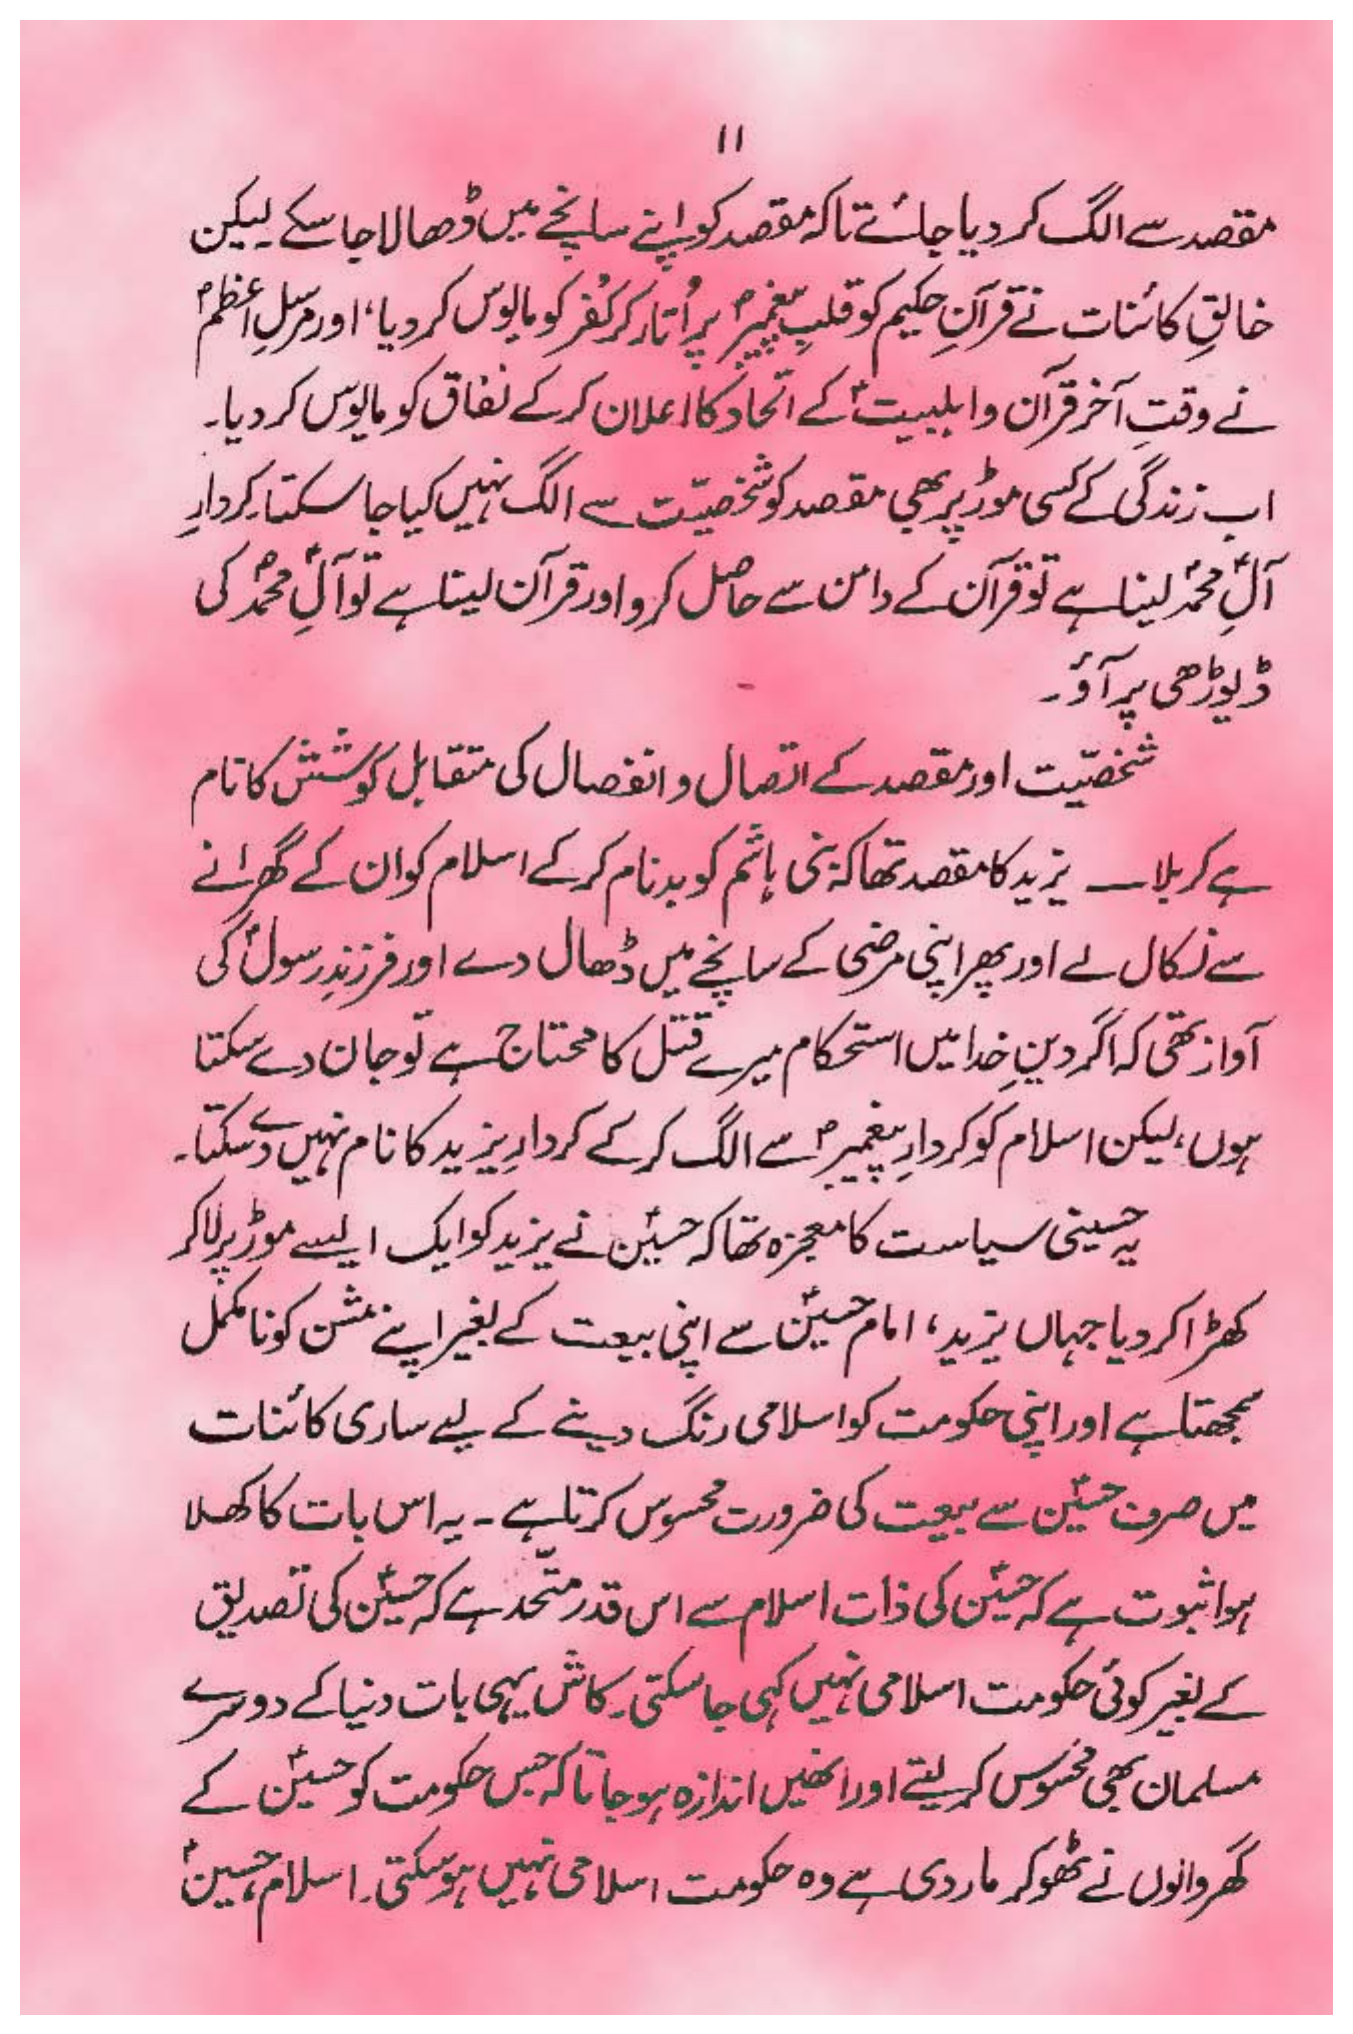 ۱۱
مقصد سے الگ کر دیا جائے تاکہ مقصد کو اپنے سانچے میں ڈھالا جا سکے۔ لیکن
خالقِ کائنات نے قرآنِ حکیم کو قلبِ پیغمبرؐ پر اُتار کر کُفر کو مایوس کر دیا، اور مرسلِ اعظمؐ
نے وقتِ آخر قرآن و اہلبیتؑ کے اتحاد کا اعلان کر کے نفاق کو مایوس کر دیا۔
اب زندگی کے کسی موڑ پر بھی مقصد کو شخصیّت سے الگ نہیں کیا جا سکتا۔ کردارِ
آلِ محمدؐ لینا ہے تو قرآن کے دامن سے حاصل کرو اور قرآن لینا ہے تو آلِ محمدؐ کی
ڈیوڑھی پر آؤ۔
شخصیّت اور مقصد کے اتصال و انفصال کی متقابل کوشش کا نام
ہے کربلا — یزید کا مقصد تھا کہ بنی ہاشم کو بدنام کر کے اسلام کو ان کے گھرانے
سے نکال لے اور پھر اپنی مرضی کے سانچے میں ڈھال دے اور فرزندِ رسولؐ کی
آواز تھی کہ اگر دینِ خدا میں استحکام میرے قتل کا محتاج ہے تو جان دے سکتا
ہوں، لیکن اسلام کو کردارِ پیغمبرؐ سے الگ کر کے کردارِ یزید کا نام نہیں دے سکتا۔
یہ حسینی سیاست کا معجزہ تھا کہ حسینؑ نے یزید کو ایک ایسے موڑ پر لا کر
کھڑا کر دیا جہاں یزید، امام حسینؑ سے اپنی بیعت کے بغیر اپنے مشن کو نامکمل
سمجھتا ہے اور اپنی حکومت کو اسلامی رنگ دینے کے لیے ساری کائنات
میں صرف حسینؑ سے بیعت کی ضرورت محسوس کرتا ہے۔ یہ اس بات کا کھلا
ہوا ثبوت ہے کہ حسینؑ کی ذات اسلام سے اس قدر متّحد ہے کہ حسینؑ کی تصدیق
کے بغیر کوئی حکومت اسلامی نہیں کہی جا سکتی۔ کاش یہی بات دنیا کے دوسرے
مسلمان بھی محسوس کر لیتے اور انھیں اندازہ ہو جاتا کہ جس حکومت کو حسینؑ کے
گھر والوں نے ٹھوکر مار دی ہے وہ حکومت اسلامی نہیں ہو سکتی۔ اسلام، حسینؑ